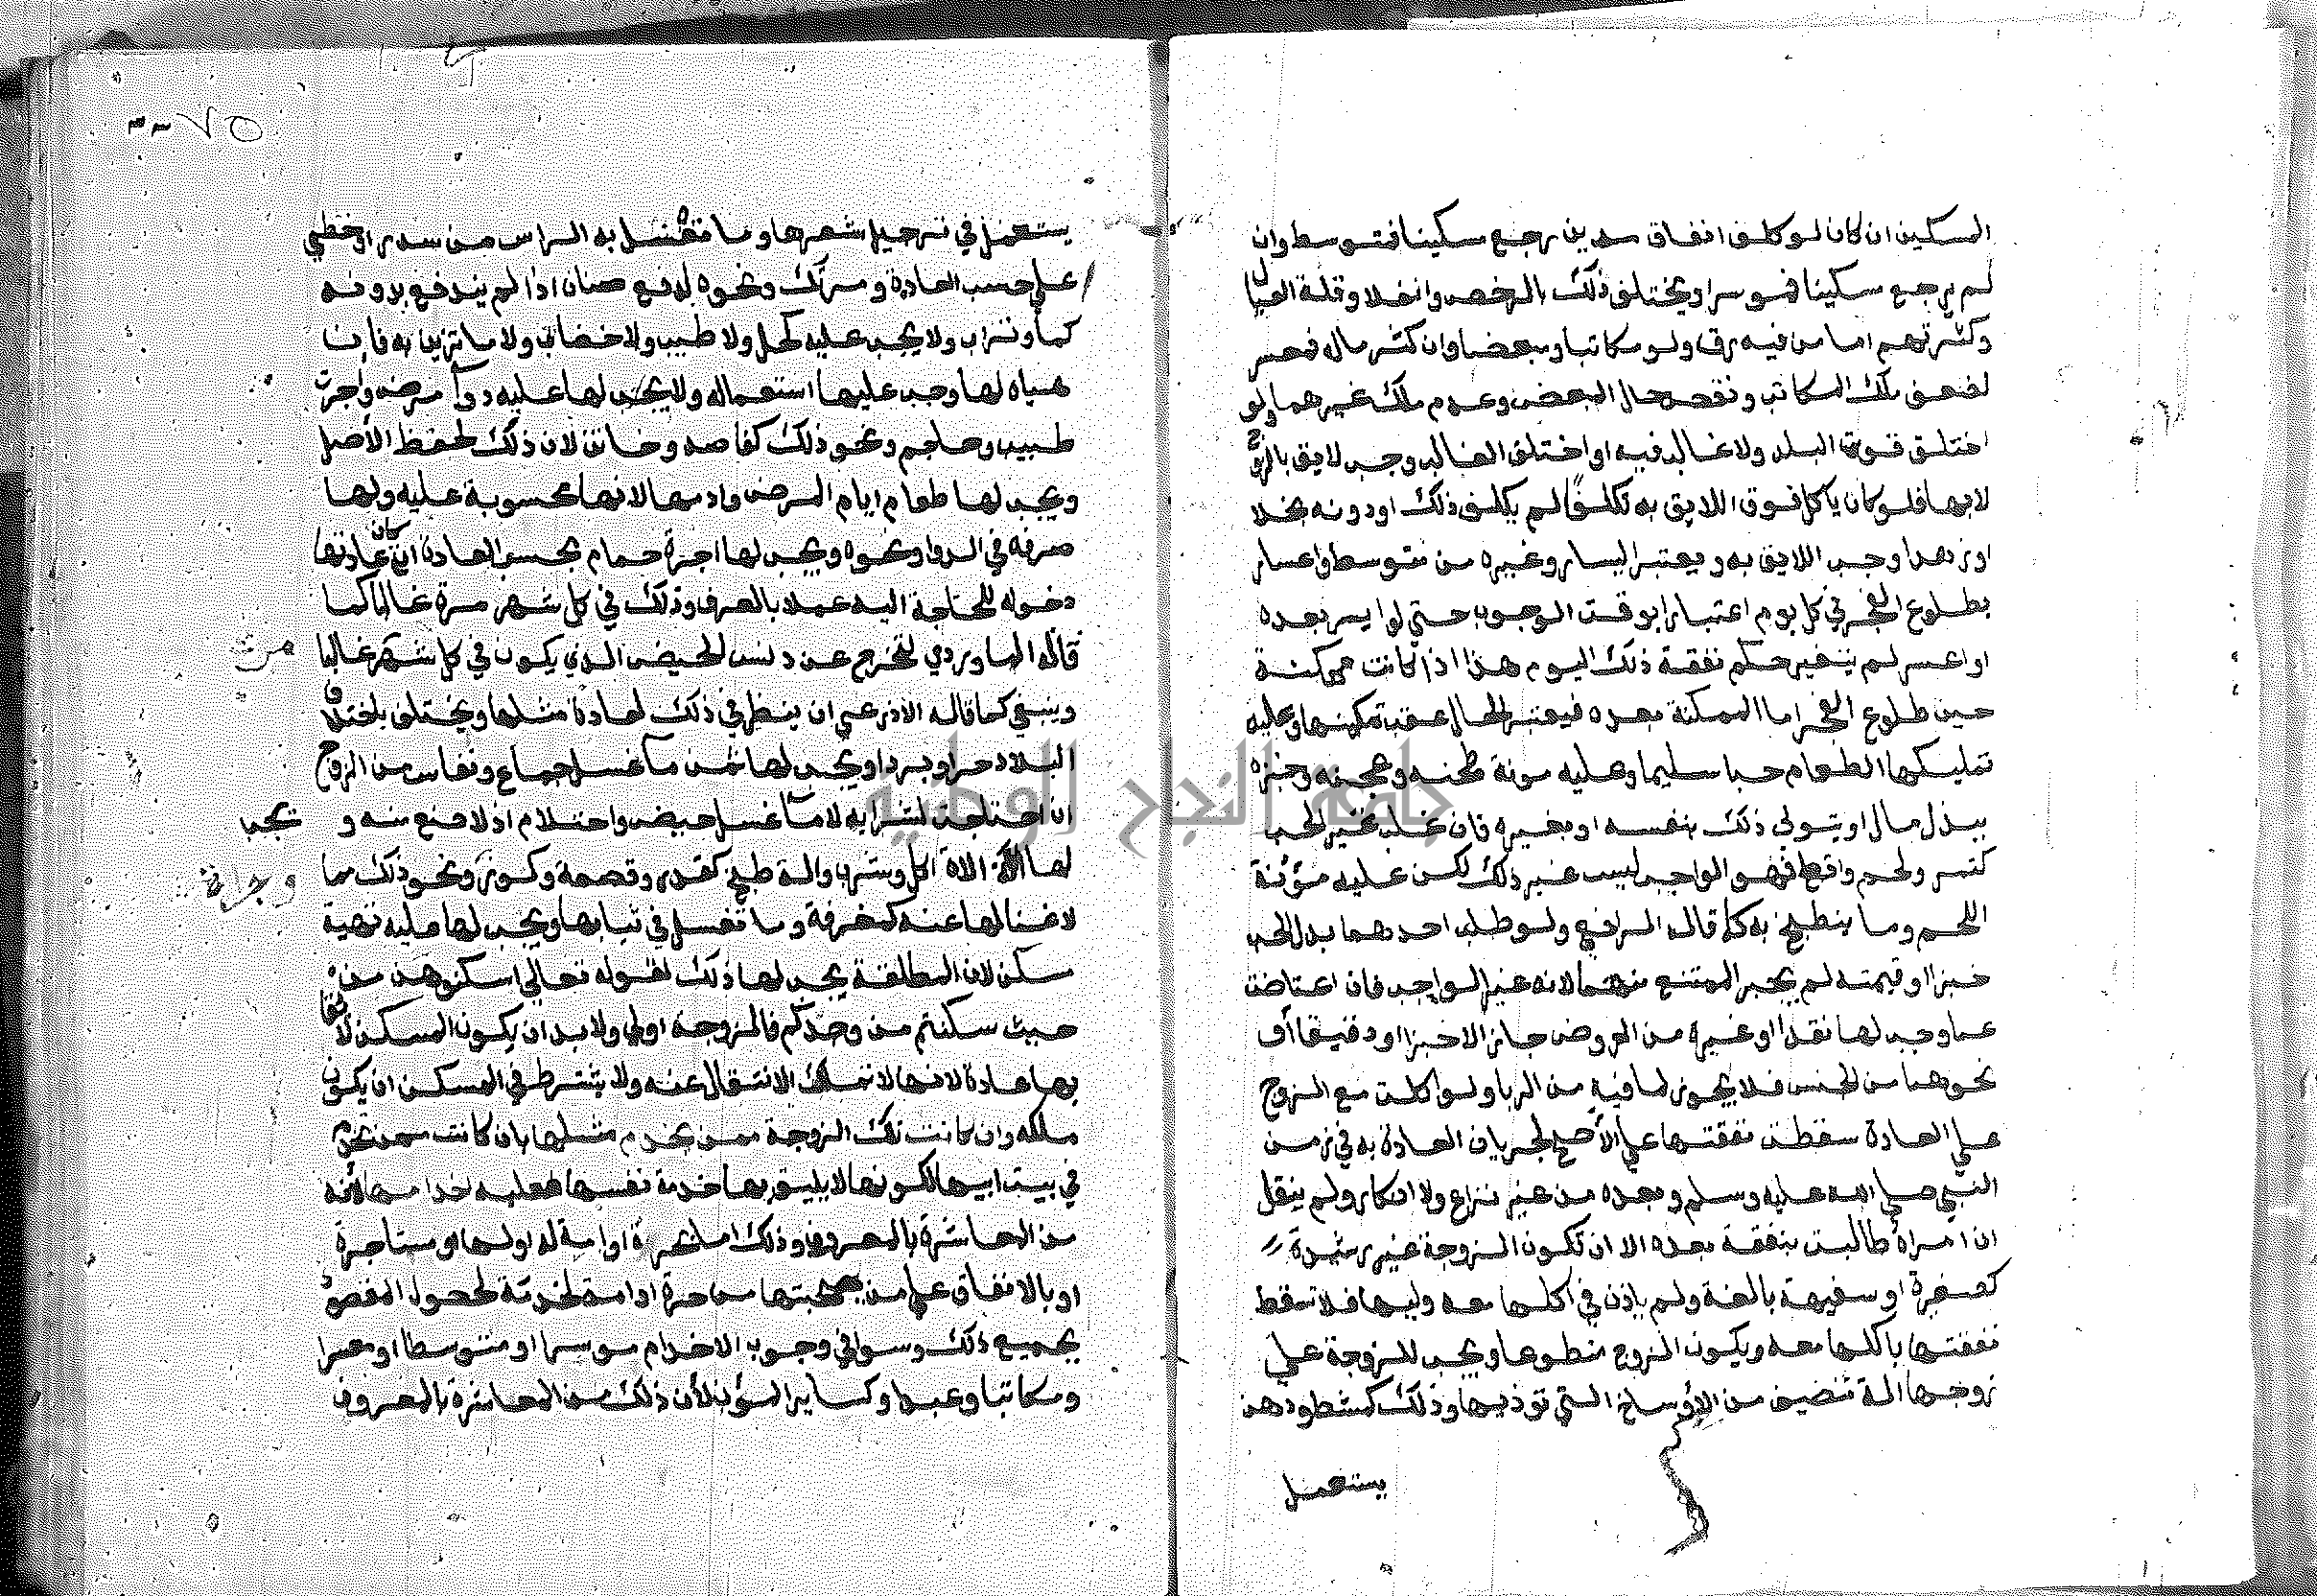 المسكين ان كان لو كلف انفاق مدين رجع مسكينا فمتوسط وان
لم يرجع مسكينا فموسرا ويختلف ذلك بالرخص والغلا وقلة العيال
وكثرتهم اما من فيه رق ولو مكاتبا ومبعضا وان كثر ماله فمعسر
لضعف ملك المكاتب ونقص حال المبعض وعدم ملك غيرهما ولو
اختلف قوت البلد ولا غالب فيه او اختلف الغالب وجب لايق بالزوج
لا بها فلو كان ياكل فوق اللايق به تكلفا لم يكلف ذلك او دونه بخلا
او زهدا وجب اللايق به ويعتبر اليسار وغيره من متوسط واعسار
بطلوع الفجر في كل يوم اعتبارا بوقت الوجوب حتي لو ايسر بعده
او اعسر لم يتغير حكم نفقة ذلك اليوم هذا اذا كانت ممكنة
حين طلوع الفجر اما الممكنة بعده فيعتبر الحال عقب تمكينها وعليه
تمليكها الطعام حبا سليما وعليه مونة طحنه وعجنه وخبزه
ببذل مال او يتولي ذلك بنفسه او بغيره فان غلب غير الحب
كتمر ولحم واقط فهو الواجب ليس غير ذلك لكن عليه مؤنة
اللحم وما ينطبخ به كما قال الرافعي ولو طلب احدهما بدل الحب
خبزا او قيمته لم يجبر الممتنع منهما لانه غير الواجب فان اعتاضت
عما وجب لها نقدا او غيره من العروض جاز الا خبزا او دقيقا او
نحوهما من الجنس فلا يجوز لما فيه من الربا ولو اكلت مع الزوج
علي العادة سقطت نفقتها علي الأصح لجريان العادة به في زمن
النبي صلي الله عليه وسلم وبعده من غير نزاع ولا انكار ولم ينقل
ان امراة طالبت بنفقة بعده الا ان تكون الزوجة غير رشيدة
كصغيرة او سفيهة بالغة ولم ياذن في اكلها معه وليها فلا تسقط
نفقتها باكلها معه ويكون الزوج متطوعا ويجب للزوجة علي
زوجها الة تنضيف من الاوساخ التي توذيها وذلك كمشط ودهن
يستعمل
٧٥
يستعمل في ترجيل شعرها وما تغسل به الراس من سدر او خطمي
علي حسب العادة ومرتك ونحوه لدفع صنان اذا لم يندفع بدونه
كماء وتراب ولا يجب عليه كحل ولا طيب ولا خضاب ولا ما تزين به فان
هياه لها وجب عليها استعماله ولا يجب لها عليه دوآ مرض واجرة
طبيب وحاجم ونحو ذلك كفاصد وخاتن لان ذلك لحفظ الأصل
ويجب لها طعام ايام المرض وادمها لانها محسوبة عليه ولها
صرفه في الدوا ونحوه ويجب لها اجرة حمام بحسب العادة ان كان عادتها
دخوله للحاجة اليه عملا بالعرف وذلك في كل شهر مرة غالبا كما
قاله الماوردي لتخرج عن دنس الحيض الذي يكون في كل شهر غالبا
مرة
وينبغي كما قاله الاذرعي ان ينظر في ذلك لعادة مثلها ويختلف باختلاف
البلاد حرا وبردا ويجب لها ثمن مآ غسل جماع ونفاس من الزوج
ان احتاجت لشرايه لا مآ غسل حيض واحتلام اذ لا صنع منه و تجب
لها الة اكل وشرب والة طبخ كقدر وقصعة وكوز ونحو ذلك مما
وجرة
لا غنا لها عنه كمغرفة وما تغسل في ثيابها ويجب لها عليه تهية
سكن لان المطلقة يجب لها ذلك لقوله تعالي اسكنوهن من
حيث سكنتم من وجدكم فالزوجة اولي ولا بد ان يكون المسكن لائقا
بها عادة لانها لا تملك الانتقال عنه ولا يشترط في المسكن ان يكون
ملكه وان كانت تلك الزوجة ممن يخدم مثلها بان كانت ممن تخدم
في بيت ابيها لكونها لا يليق بها خدمة نفسها فعليه اخدامها لانه
من المعاشرة بالمعروف وذلك اما بحرة او امة له او لها او مستاجرة
او بالانفاق علي من صحبتها من حرة او امة لخدمة لحصول المقصود
بجميع ذلك وسوا في وجوب الاخدام موسرا او متوسطا او معسرا
ومكاتبا وعبدا وكساير المؤن لأن ذلك من المعاشرة بالمعروف
جامعة النجاح الوطنية